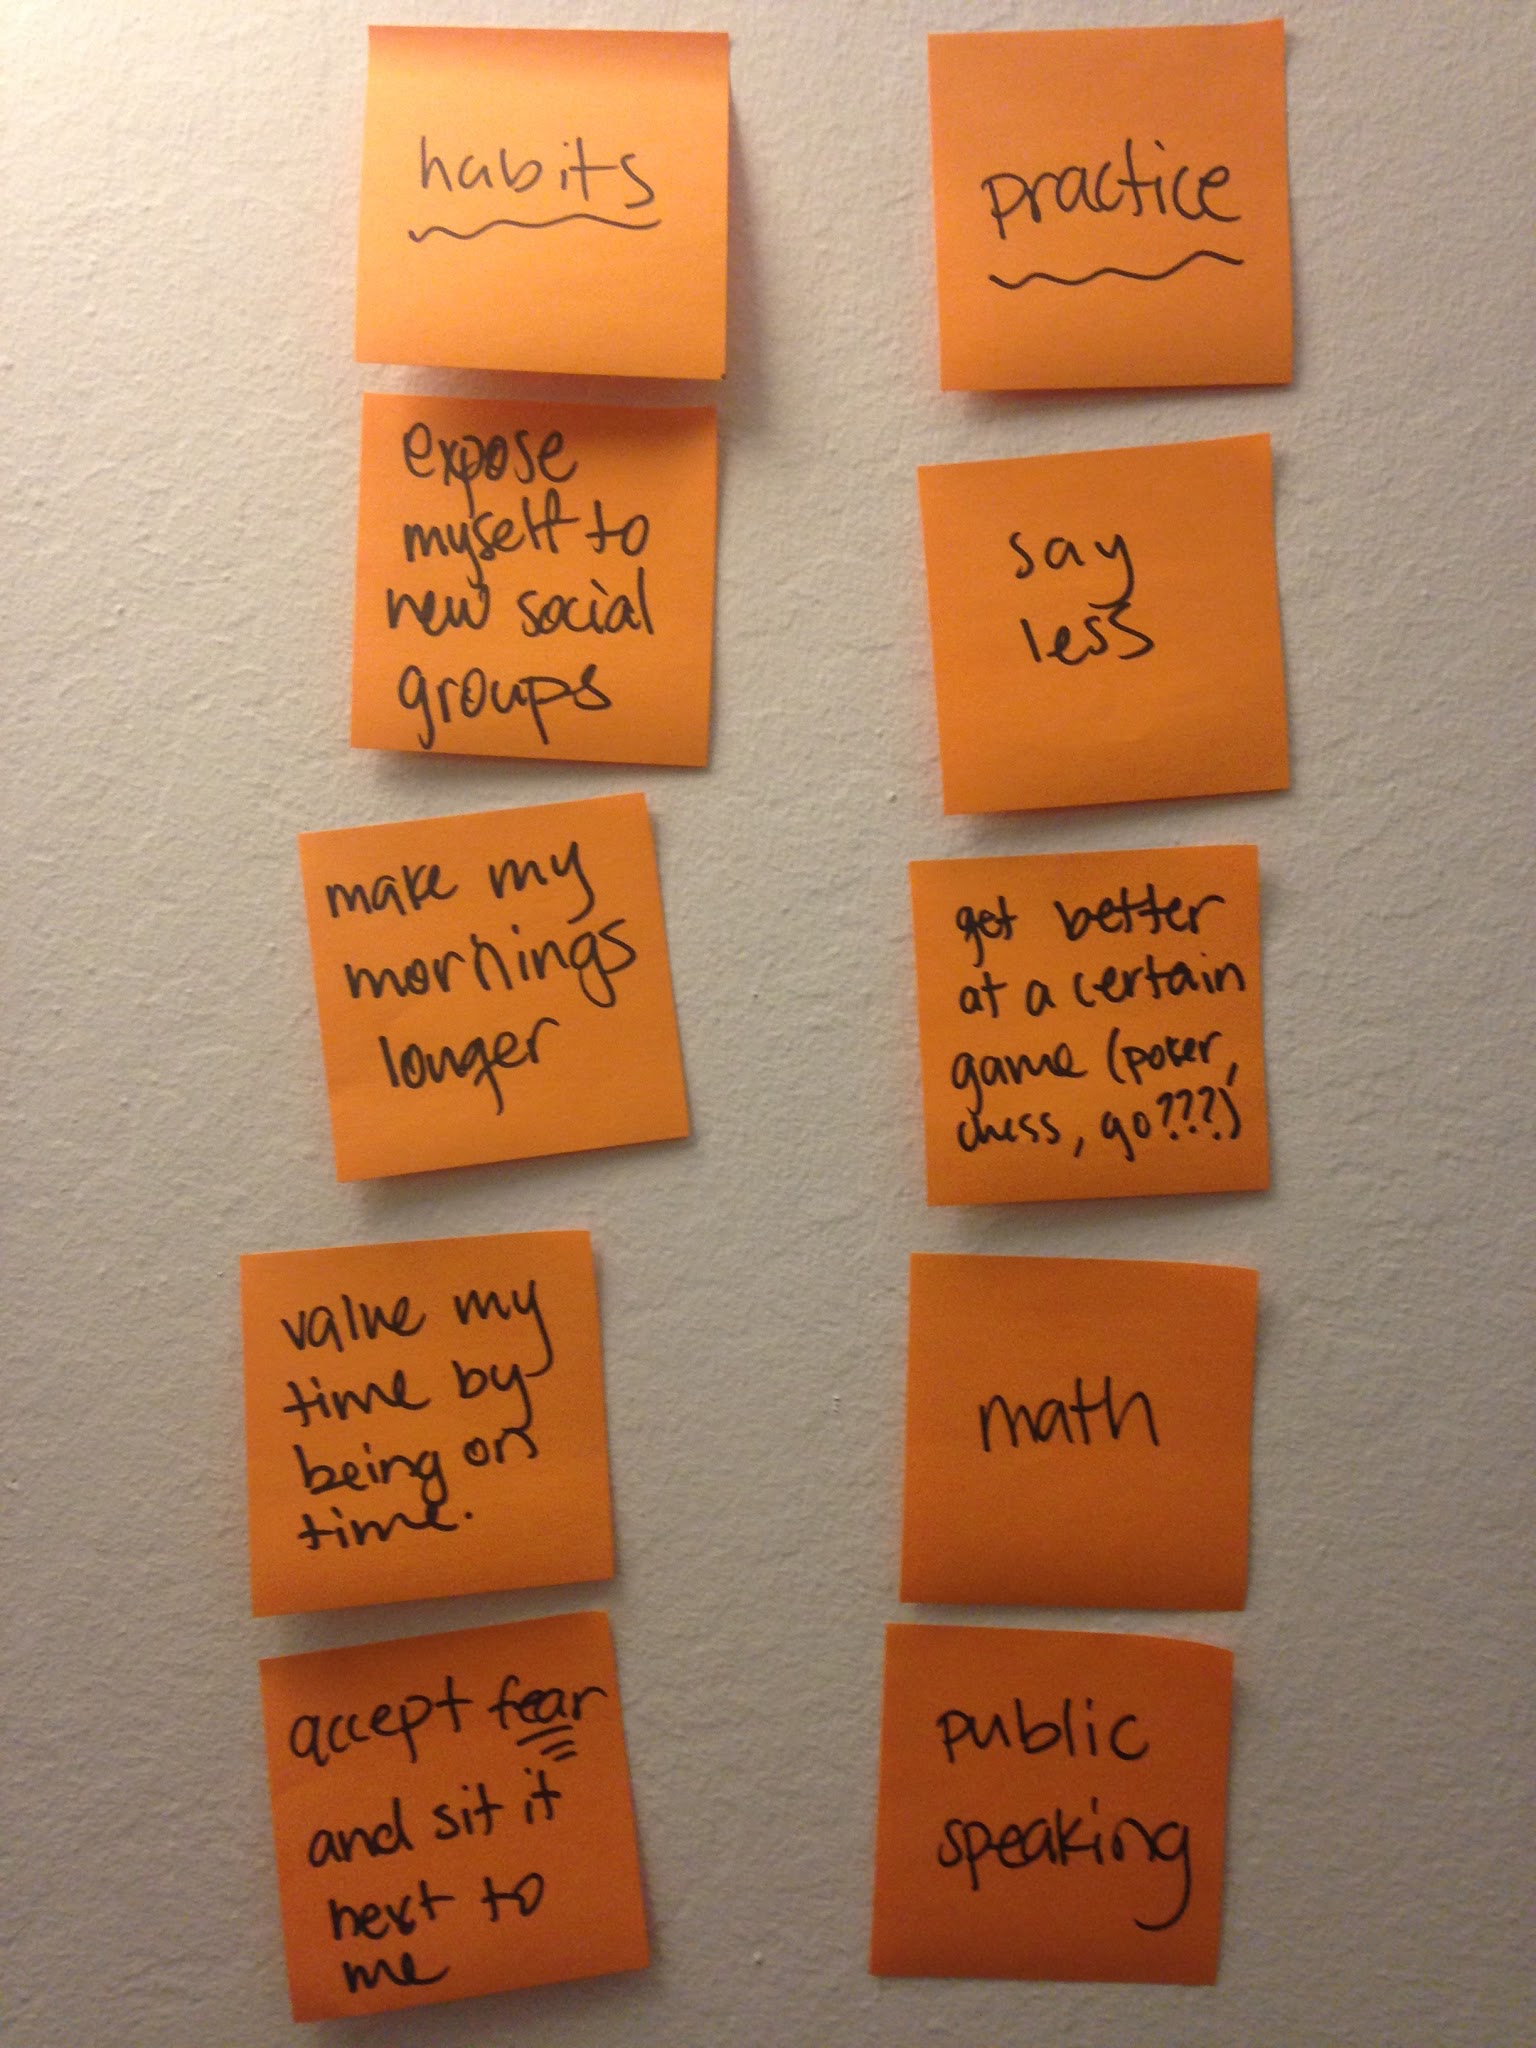 habits
expose
myself to
new social
groups
make my
mornings
longer
value my
time by
being on
time.
accept fear
and sit it
next to
me
practice
say
less
get better
at a certain
game (poker,
chess, go???)
math
public
speaking